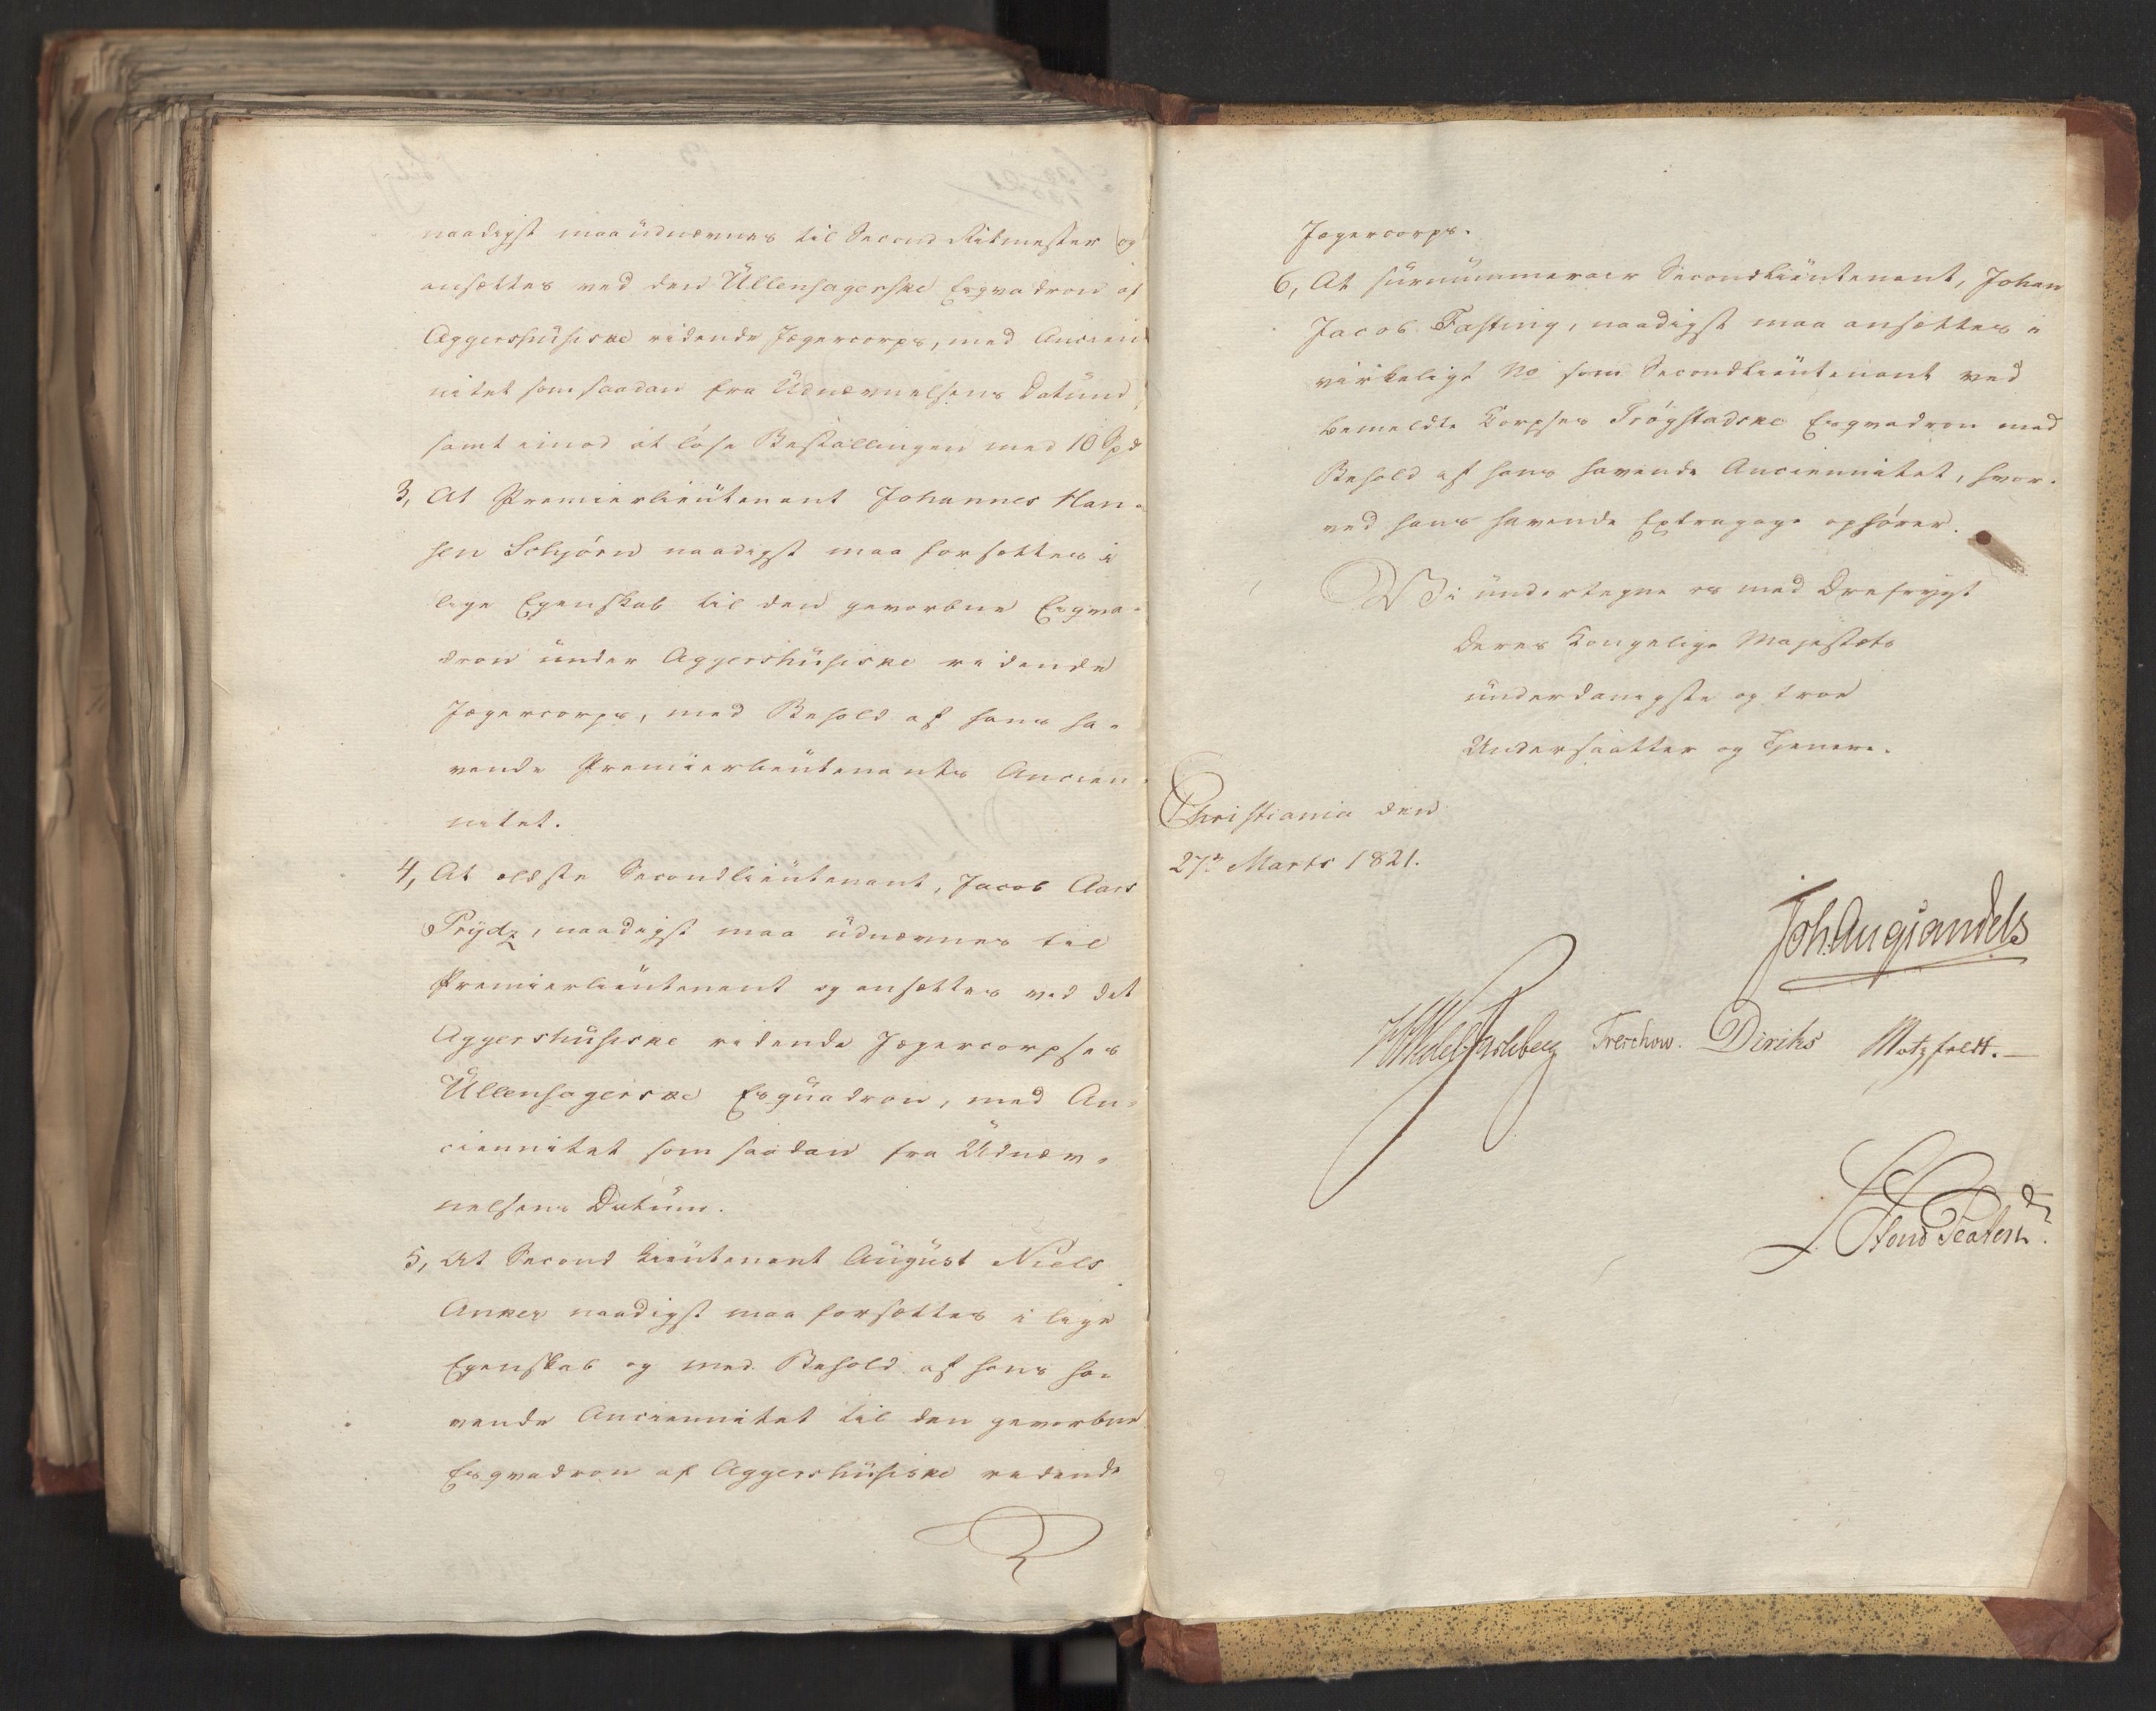 naadigst maa udnævnes til Second Ritmester og
ansættes ved den Ullensagerske Esqvadron af
Aggershusiske ridende Jægercorps, med Ancien
nitet som saadan fra Udnævnelsens Datum,
samt imod at løse Bestallingen med 10 Spd
3, At Premierlieutenant Johannes Han-
sen Schjörn naadigst maa forsættes i
lige Egenskab til den gevorbne Esqva-
dron under Aggershusiske ridende
Jægercorps, med Behold af hans ha-
vende Premierlieutenants Ancien
nitet.
4, At ældste Secondlieutenant, Jacob Aars
Prydz, naadigst maa udnævnes til
Premierlieutenant og ansættes ved det
Aggershusiske ridende Jægercorpses
Ullensagerske Esquadron, med An-
ciennitet som saadan fra Udnæv-
nelsens Datum.
5, At Second Lieutenant August Niels
Anker naadigst maa forsættes i lige
Egenskab og med Behold af hans ha-
vende Anciennitet til den gevorbne
Esqvadron af Aggershusiske ridende
Jægercorps.
6, At surnummerair Secondlieutenant, Johan
Jacob Fasting, naadigst maa ansættes i
virkeligt No som Secondlieutenant ved
bemeldte Corpses Trögstadske Esqvadron med
Behold af hans havende Anciennitet, hvor-
ved hans havende Extragage ophörer.
Vi undertegne os med Ærefrygt
Deres Kongelige Majestæts
underdanigste og troe
Undersaatter og Tjenere.
Christiania den
27de Marts 1821.
Joh. Aug. Sandels
Treschow. Diriks Motzfeldt.